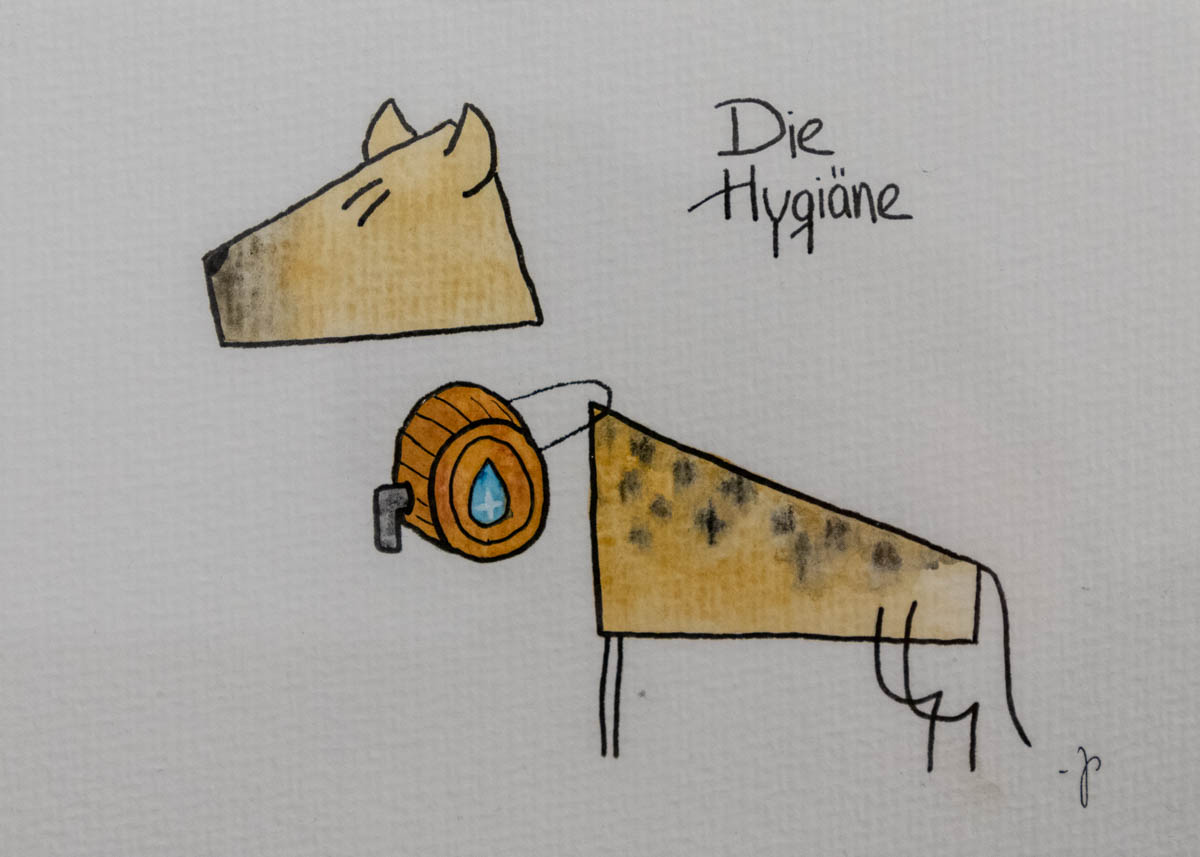 Die
Hygiäne